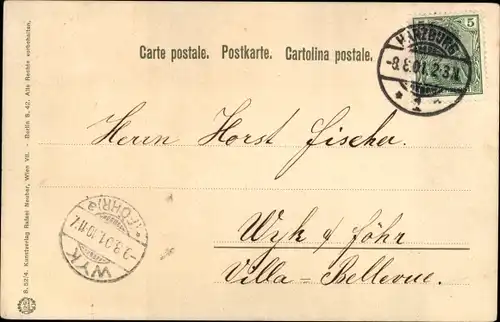 Carte postale. Postkarte. Cartolina postale.
5
HARZBURG
-8.8.01. 2-3N.
* 1 *
Herrn Horst Fischer.
Wyk a/ Föhr
Villa-Bellevue.
(FÖHR)
WYK
B. 52/4. Kunstverlag Rafael Neuber, Wien VII. - Berlin S. 42. Alle Rechte vorbehalten.